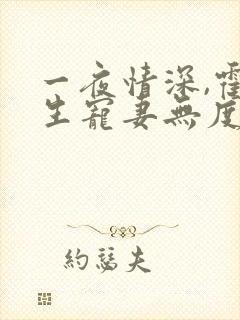 一夜情深,霍
生寵妻無度
約瑟夫